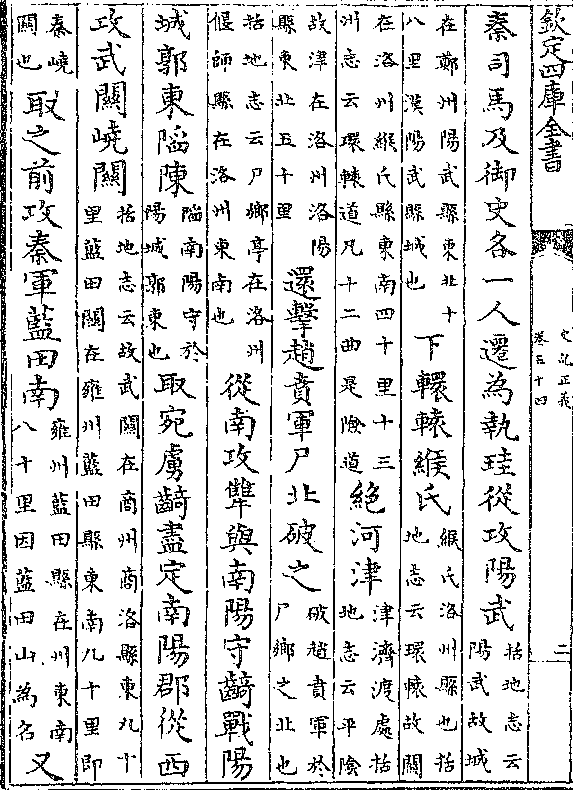 欽定四庫全書
史記正義
卷五十四
二
秦司馬及御史各一人遷為執珪從攻陽武括地志云陽武故城
在鄭州陽武縣東北十八里漢陽武縣城也下轘轅緱氏緱氏洛州縣也括地志云環轅故關
在洛州緱氏縣東南四十里十三州志云環轅道凡十二曲是險道絶河津津濟渡處括地志云平陰
故津在洛州洛陽縣東北五十里還擊趙賁軍尸北破之破趙賁軍於尸鄉之北也
括地志云尸鄉亭在洛州偃師縣在洛州東南也從南攻犨與南陽守齮戰陽
城郭東陷陳陷南陽守於陽城郭東也取宛虜齮盡定南陽郡從西
攻武關嶢關括地志云故武關在商州商洛縣東九十里藍田關在雍州藍田縣東南九十里即
秦嶢關也取之前攻秦軍藍田南雍州藍田縣在州東南八十里因藍田山為名又